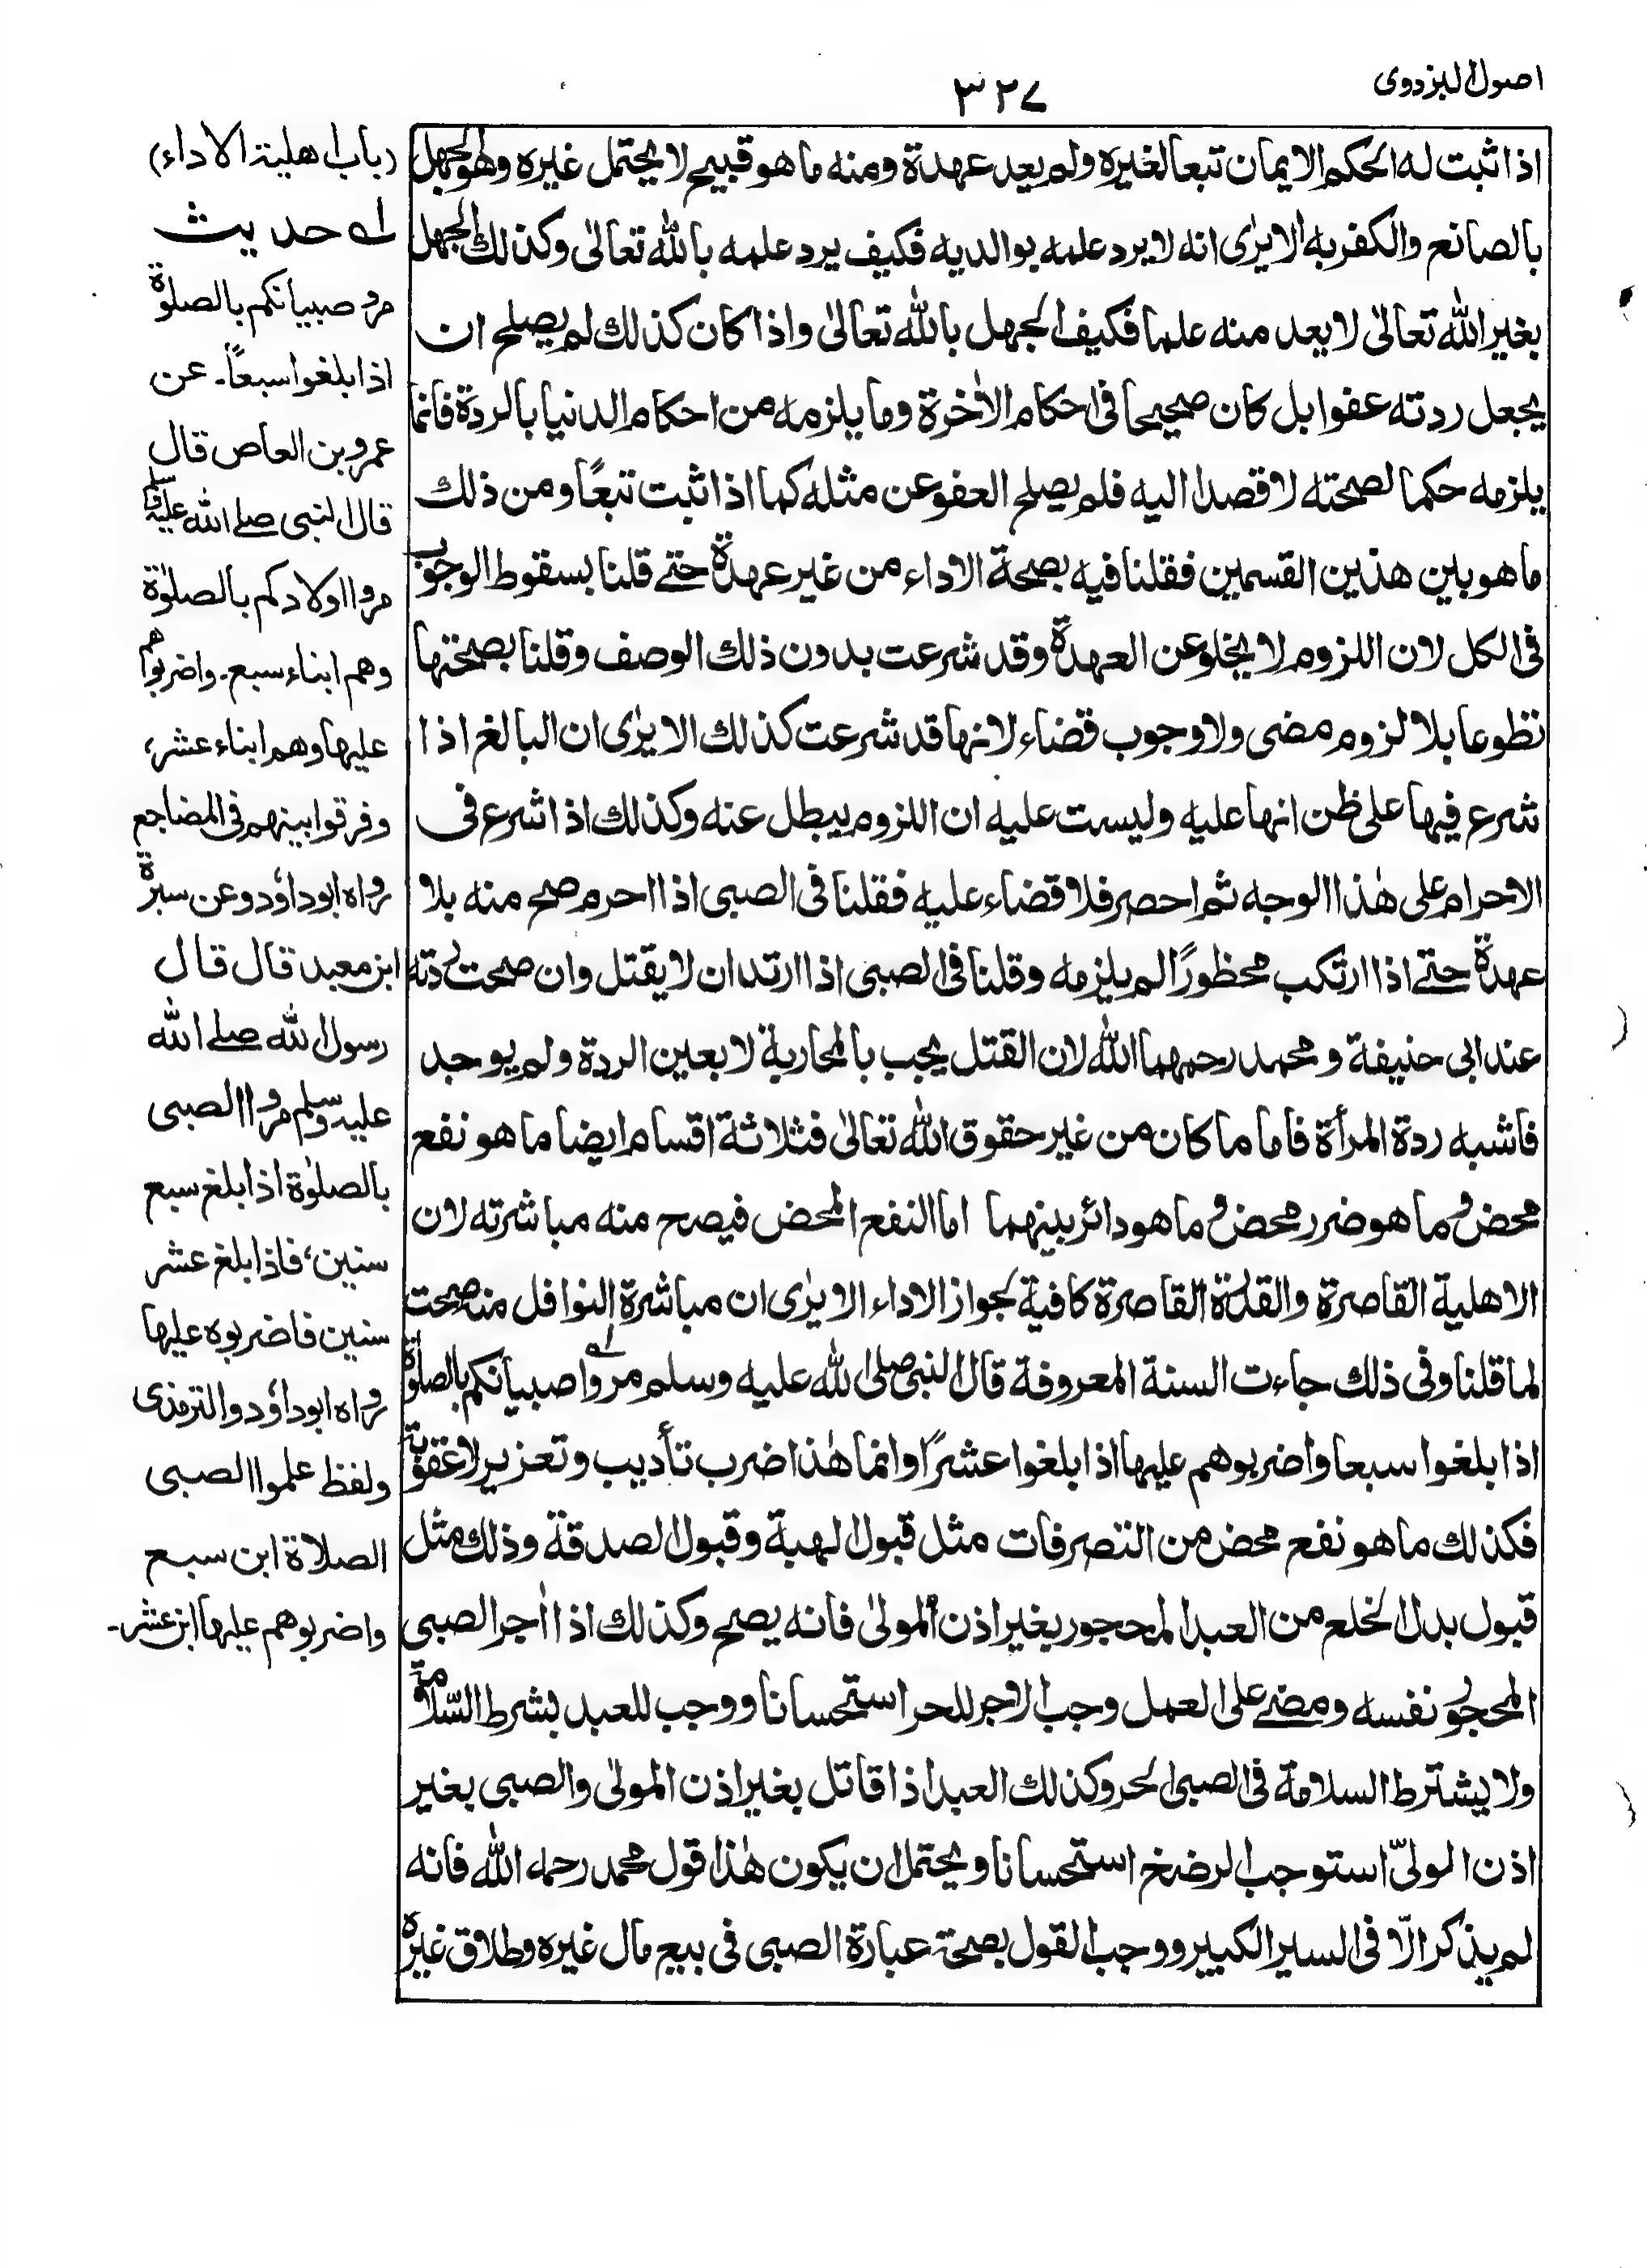 اصول البزدوی
۳۲۷
اذا ثبت له الحکم الایمان تبعا لغیره ولم یعد عهدة ومنه ما هو قبیح لا یحتمل غیره وهو الجهل
بالصانع والکفر به الا یرٰی انه لا یرد علمه بوالدیه فکیف یرد علمه بالله تعالیٰ وکذلك الجهل
بغیر الله تعالیٰ لا یعد منه علما فکیف الجهل بالله تعالیٰ واذا کان کذلك لم یصلح ان
یجعل ردته عفوا بل کان صحیحا فی احکام الاٰخرة وما یلزمه من احکام الدنیا بالردة فانما
یلزمه حکما لصحته لا قصدا الیه فلم یصلح العفو عن مثله کما اذا ثبت تبعًا ومن ذلك
ما هو بین هذین القسمین فقلنا فیه بصحة الاداء من غیر عهدة حتے قلنا بسقوط الوجوب
فی الکل لان اللزوم لا یخلو عن العهدة وقد شرعت بدون ذلك الوصف وقلنا بصحتها
تطوعا بلا لزوم مضی ولا وجوب قضاء لانها قد شرعت کذلك الا یرٰی ان البالغ اذا
شرع فیها علی ظن انها علیه ولیست علیه ان اللزوم یبطل عنه وکذلك اذا شرع فی
الاحرام علی هٰذا الوجه ثم احصر فلا قضاء علیه فقلنا فی الصبی اذا احرم صح منه بلا
عهدة حتے اذا ارتکب محظورًا لم یلزمه وقلنا فی الصبی اذا ارتد ان لا یقتل وان صحت ردته
عند ابی حنیفة ومحمد رحمهما الله لان القتل یجب بالمحاربة لا بعین الردة ولم یوجد
فاشبه ردة المرأة فاما ما کان من غیر حقوق الله تعالیٰ فثلاثة اقسام ایضا ما هو نفع
محض و ما هو ضرر محض و ما هو دائر بینهما اما النفع المحض فیصح منه مباشرته لان
الاهلیة القاصرة والقدرة القاصرة کافیة لجواز الاداء الا یرٰی ان مباشرة النوافل منه صحت
لما قلنا وفی ذلك جاءت السنة المعروفة قال النبی صلی الله علیه وسلم مروا صبیانکم بالصلوٰة
اذا بلغوا سبعا واضربوهم علیها اذا بلغوا عشرًا وانما هٰذا ضرب تأدیب وتعزیر لا عقوبة
فکذلك ما هو نفع محض من التصرفات مثل قبول الهبة وقبول الصدقة وذلك مثل
قبول بدل الخلع من العبد المحجور بغیر اذن المولیٰ فانه یصح وکذلك اذا اٰجر الصبی
المحجور نفسه ومضے علی العمل وجب الاجر للحر استحسانا ووجب للعبد بشرط السّلامة
ولا یشترط السلامة فی الصبی الحر وکذلك العبد اذا قاتل بغیر اذن المولیٰ والصبی بغیر
اذن الولیّ استوجب الرضخ استحسانا ویحتمل ان یکون هٰذا قول محمد رحمه الله فانه
لم یذکر الّا فی السیر الکبیر ووجب القول بصحة عبارة الصبی فی بیع مال غیره وطلاق غیره
(باب اهلیة الاداء)
لـه حدیث
مروا صبیانکم بالصلوٰة
اذا بلغوا سبعًا۔ عن
عمرو بن العاص قال
قال النبی صلے الله علیه وسلم
مروا اولادکم بالصلوٰة
وهم ابناء سبع۔ واضربوهم
علیها وهم ابناء عشر،
وفرقوا بینهم فی المضاجع
رواه ابوداؤد وعن سبرة
ابن معبد قال قال
رسول الله صلے الله
علیه وسلم مروا الصبی
بالصلوٰة اذا بلغ سبع
سنین، فاذا بلغ عشر
سنین فاضربوه علیها
رواه ابوداؤد والترمذی
ولفظ علموا الصبی
الصلاة ابن سبع
واضربوهم علیها ابن عشر۔